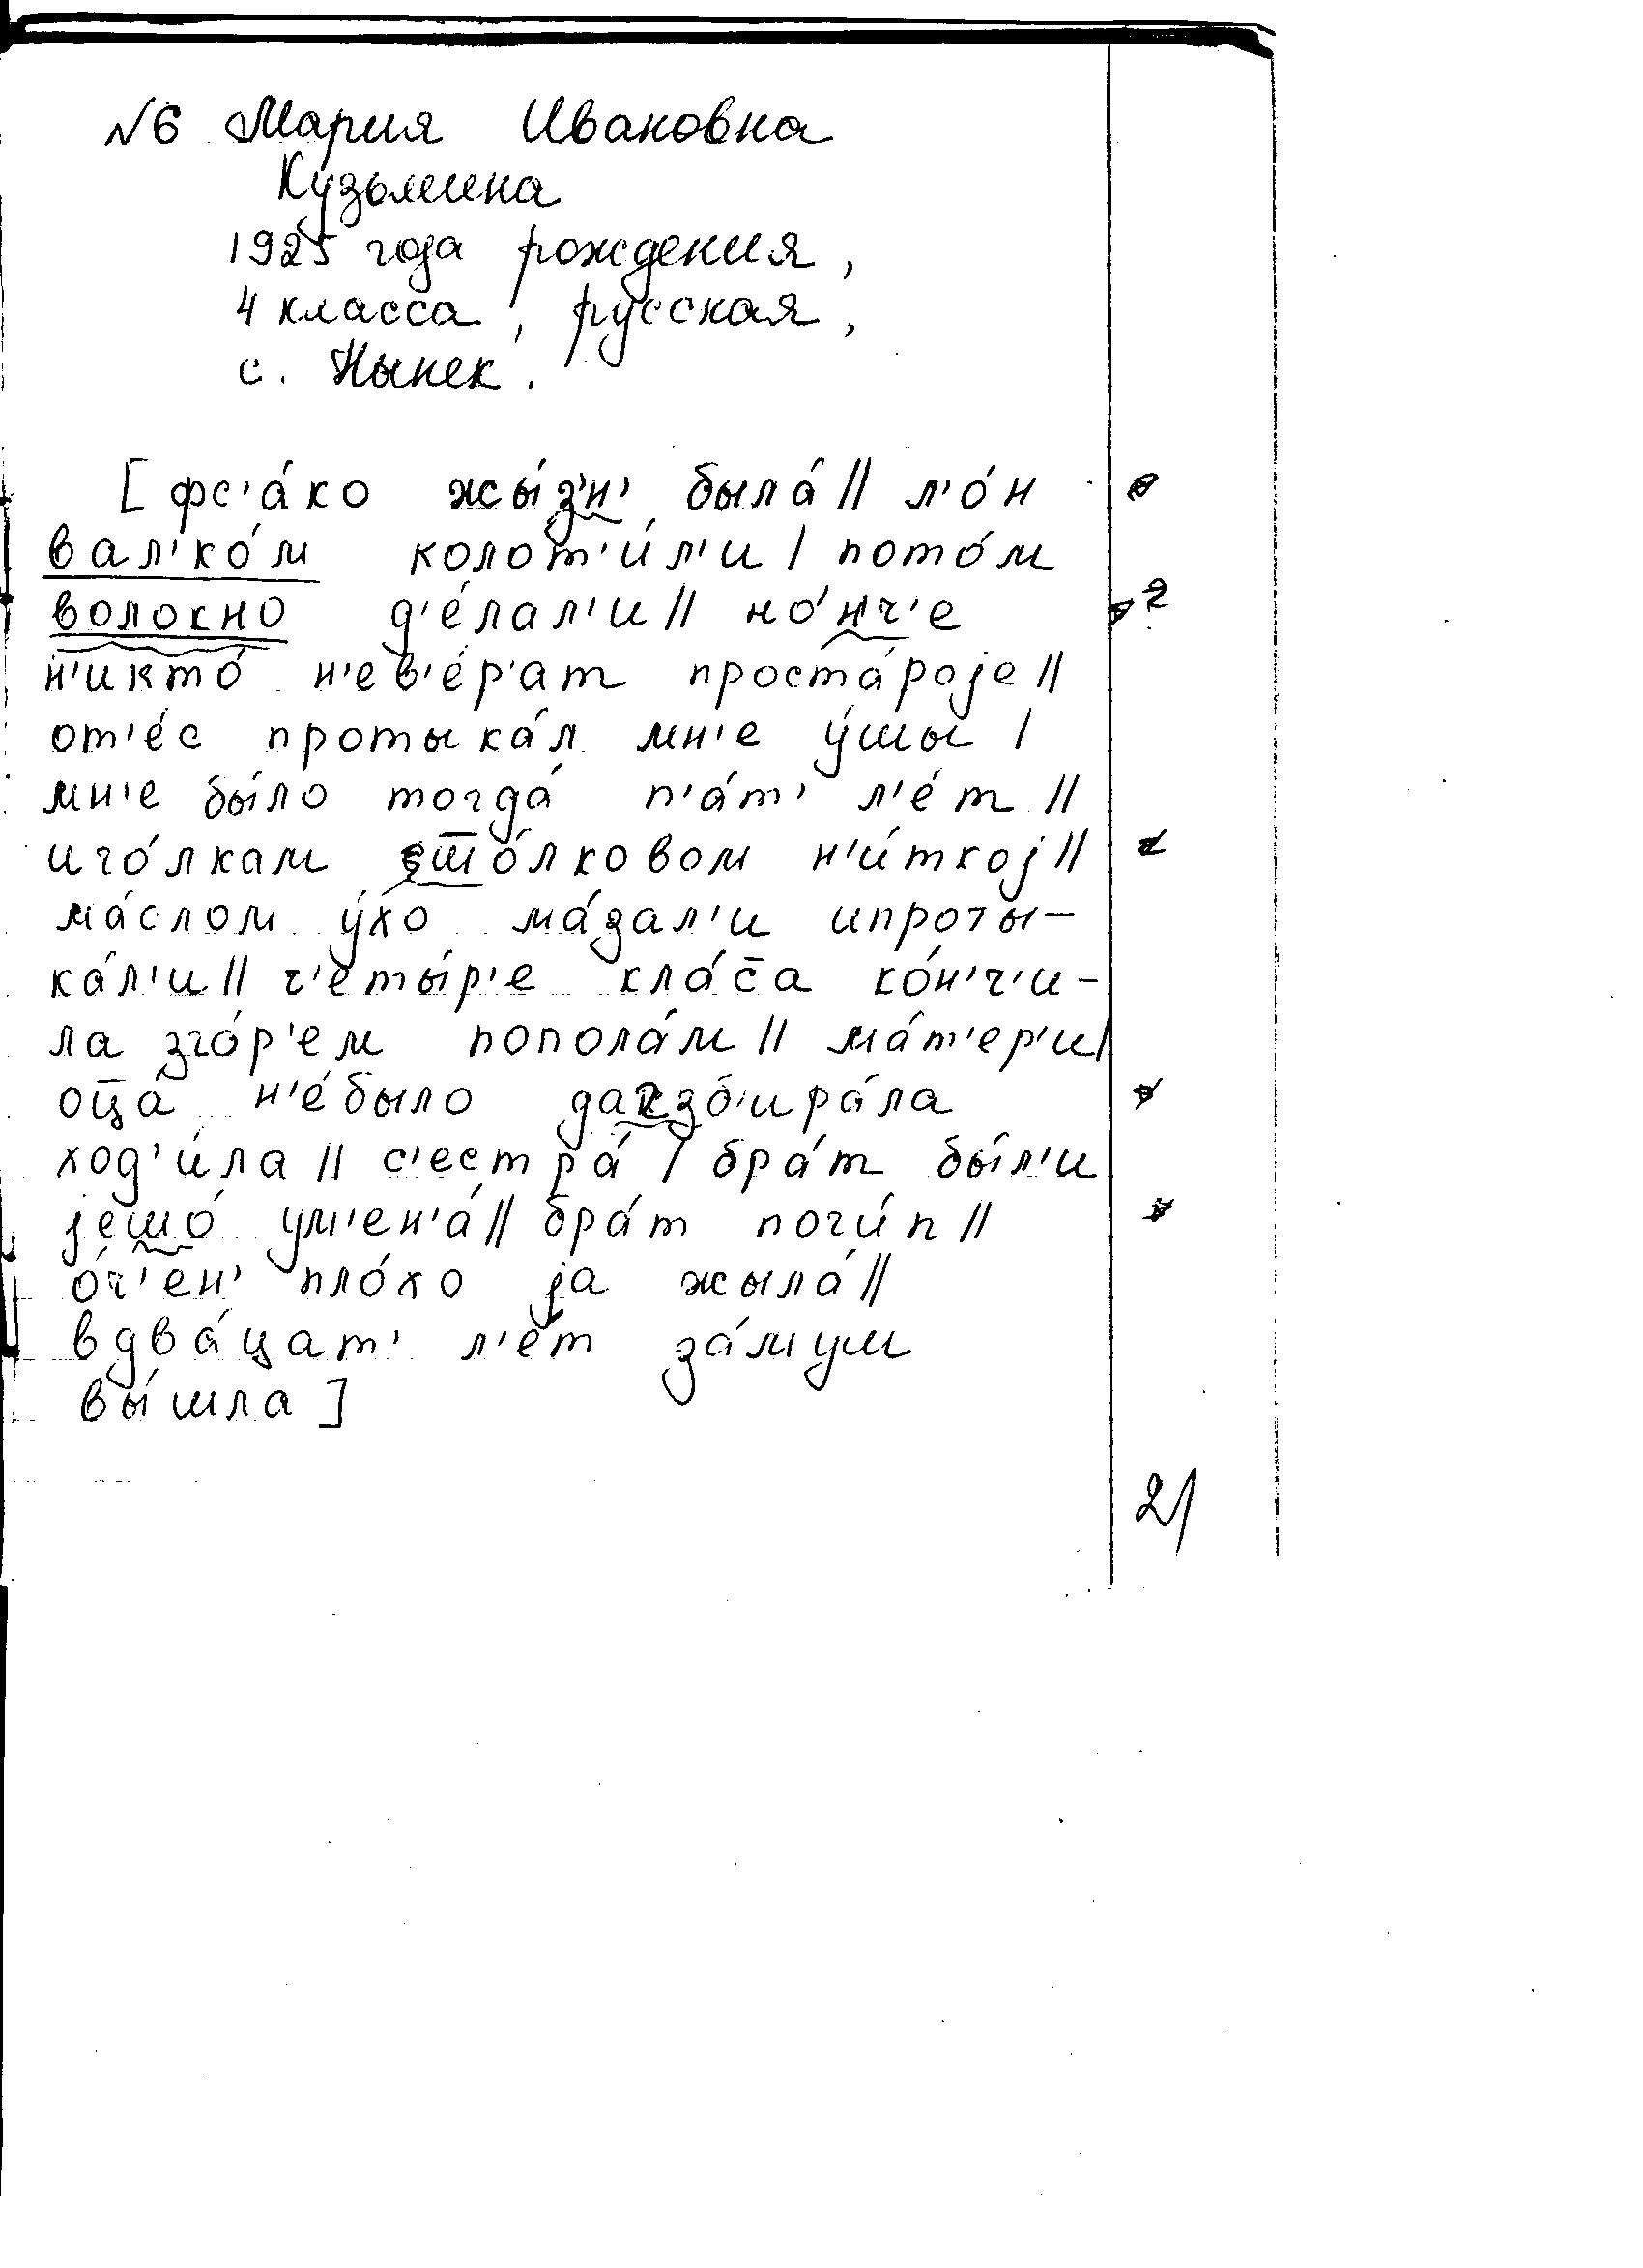 №6 Мария Ивановна
Кузьмина
1925 года рождения,
4 класса, русская,
с. Нынек.
[фс'а́ко жы́з'н' была́ || л'о́н
вал'ко́м колот'и́л'и | пото́м
волокно д'е́лал'и || но́н'ч'е
н'икто́ н'ев'е́р'ат проста́роjе ||
от'е́с протыка́л мн'е у́шы |
мн'е бы́ло тогда́ п'а́т' л'е́т ||
иго́лкам ш̅о́лковом н'и́ткоj ||
ма́слом у́хо ма́зал'и ипроты-
ка́л'и || ч'еты́р'е кла́с̅а ко́н'ч'и-
ла зго́р'ем попола́м || ма́т'ер'и |
оц̅а́ н'е́было дакзб'ира́ла
ход'и́ла || с'естра́ | бра́т бы́л'и
jешо́ ум'ен'а́ || бра́т поги́п ||
о́ч'ен' пло́хо jа жыла́ ||
вдва́цат' л'е́т за́муш
вы́шла]
2
21